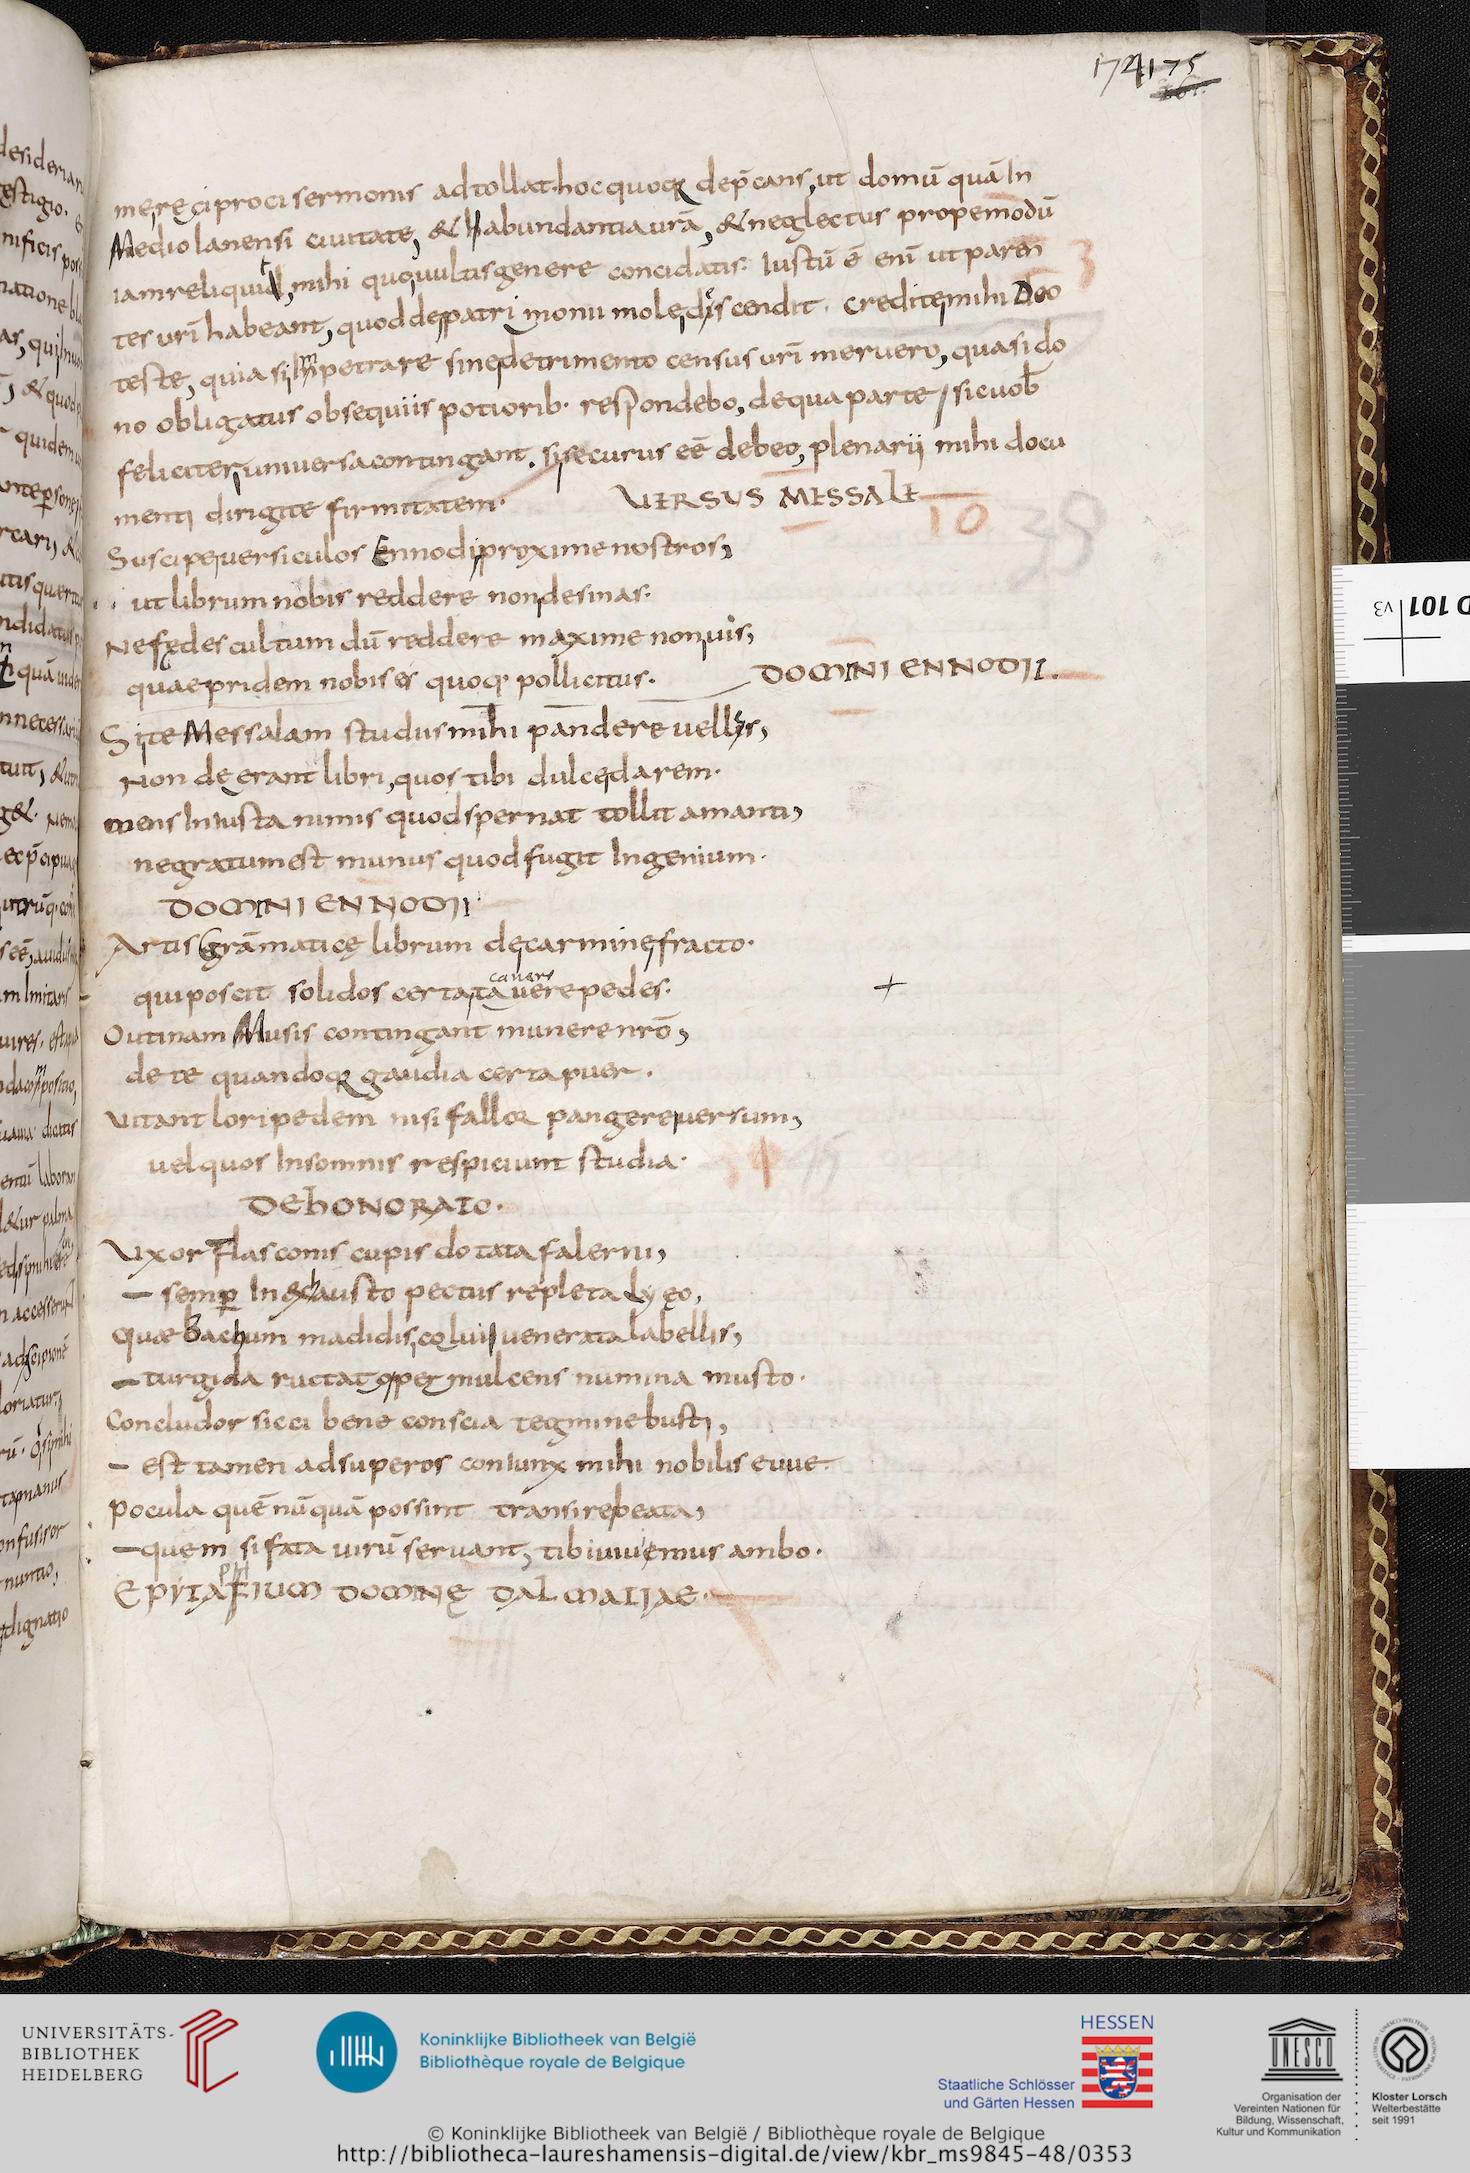 174175
me reciproci sermonis adtollat. hoc quoq; dep̄cans, ut domū quā In
Mediolanensi ciuitate, & habundantia urā, & neglectus propemodū
iam reliquid, mihi quouultis genere concidatis. Iustū ē enī ut paren
tes urī habeant, quod de patrimonii mole discendit. Credite mihi Deo
teste, quia si Impetrare sine detrimento census urī meruero, quasi do
no obligatus obsequiis potiorib· respondebo, de qua parte / sic uob̄
feliciter uniuersa contingant. si securus eē debeo, plenarii mihi docu
menti dirigite firmitatem·
VERSUS MESSALE
10
Suscipe uersiculos Ennodii proxime nostros,
ut librum nobis reddere non desinas:
Ne fędes cultum dū reddere maxime non uis,
quae pridem nobis es quoq; pollicitus.
DOMNI ENNODII.
Si te Messalam studiis mihi pandere uellis,
Non deerant libri, quos tibi dulce darem.
mens Iniusta nimis quod spernat tollit amanti,
ne gratum est munus quod fugit Ingenium.
DOMNI ENNODII
Artis Grāmaticę librum de carmine fracto.
cauers
qui poscit solidos certat auere pedes.
O utinam Musis contingant munere nrō,
de te quandoq; gaudia certa puer.
Vitant loripedem nisi fallor pangere uersum,
uel quos Insomnis respiciunt studia.
DE hONORATO.
Vxor Flasconis cupis dotata falerni,
— semp̄ In exhausto pectus repleta lyęo,
Quae bachum madidis, colui uenerata labellis,
— turgida ructat opper mulcens numina musto.
Concludor sicci bene conscia tegmine busti,
— est tamen ad superos coniunx mihi nobilis euue.
pocula quē nū quā possint transire beata,
— quem si fata uirū seruant, tibi uiuemus ambo.
EpiTAFIUM DOMNĘ DALMATIAE.
D 101
v3
UNIVERSITÄTS-
BIBLIOTHEK
HEIDELBERG
Koninklijke Bibliotheek van België
Bibliothèque royale de Belgique
HESSEN
Staatliche Schlösser
und Gärten Hessen
UNESCO
Organisation der
Vereinten Nationen für
Bildung, Wissenschaft,
Kultur und Kommunikation
Kloster Lorsch
Welterbestätte
seit 1991
© Koninklijke Bibliotheek van België / Bibliothèque royale de Belgique
http://bibliotheca-laureshamensis-digital.de/view/kbr_ms9845-48/0353